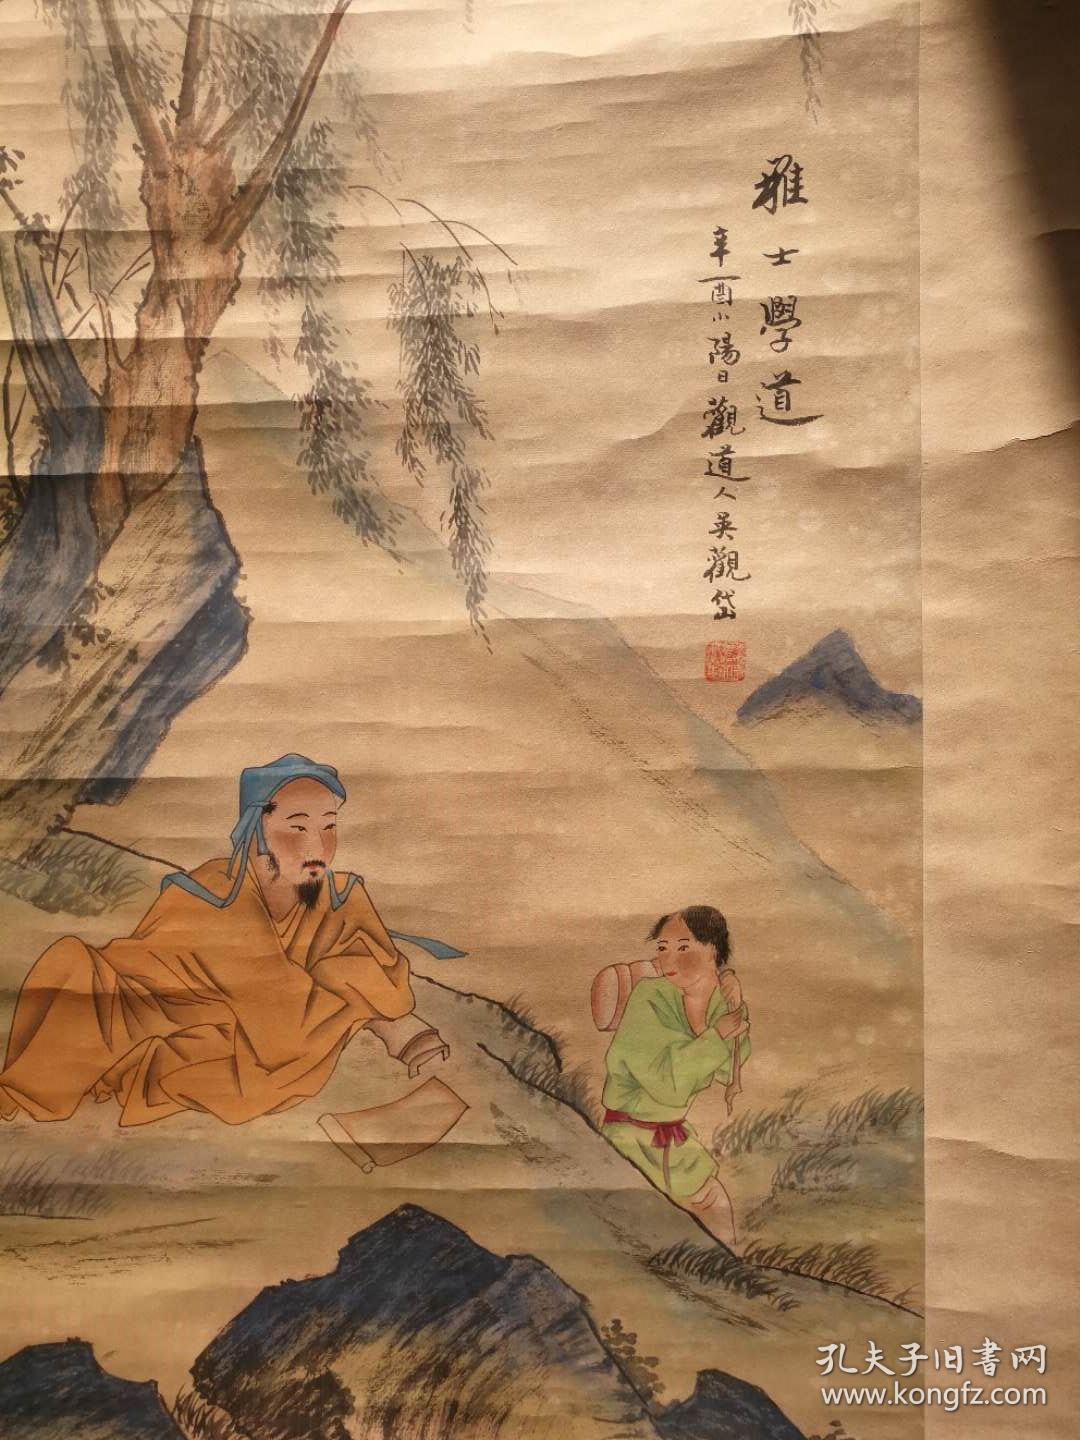 雅士學道
辛酉小陽日觀道人吴觀岱
孔夫子旧書网
www.kongfz.com